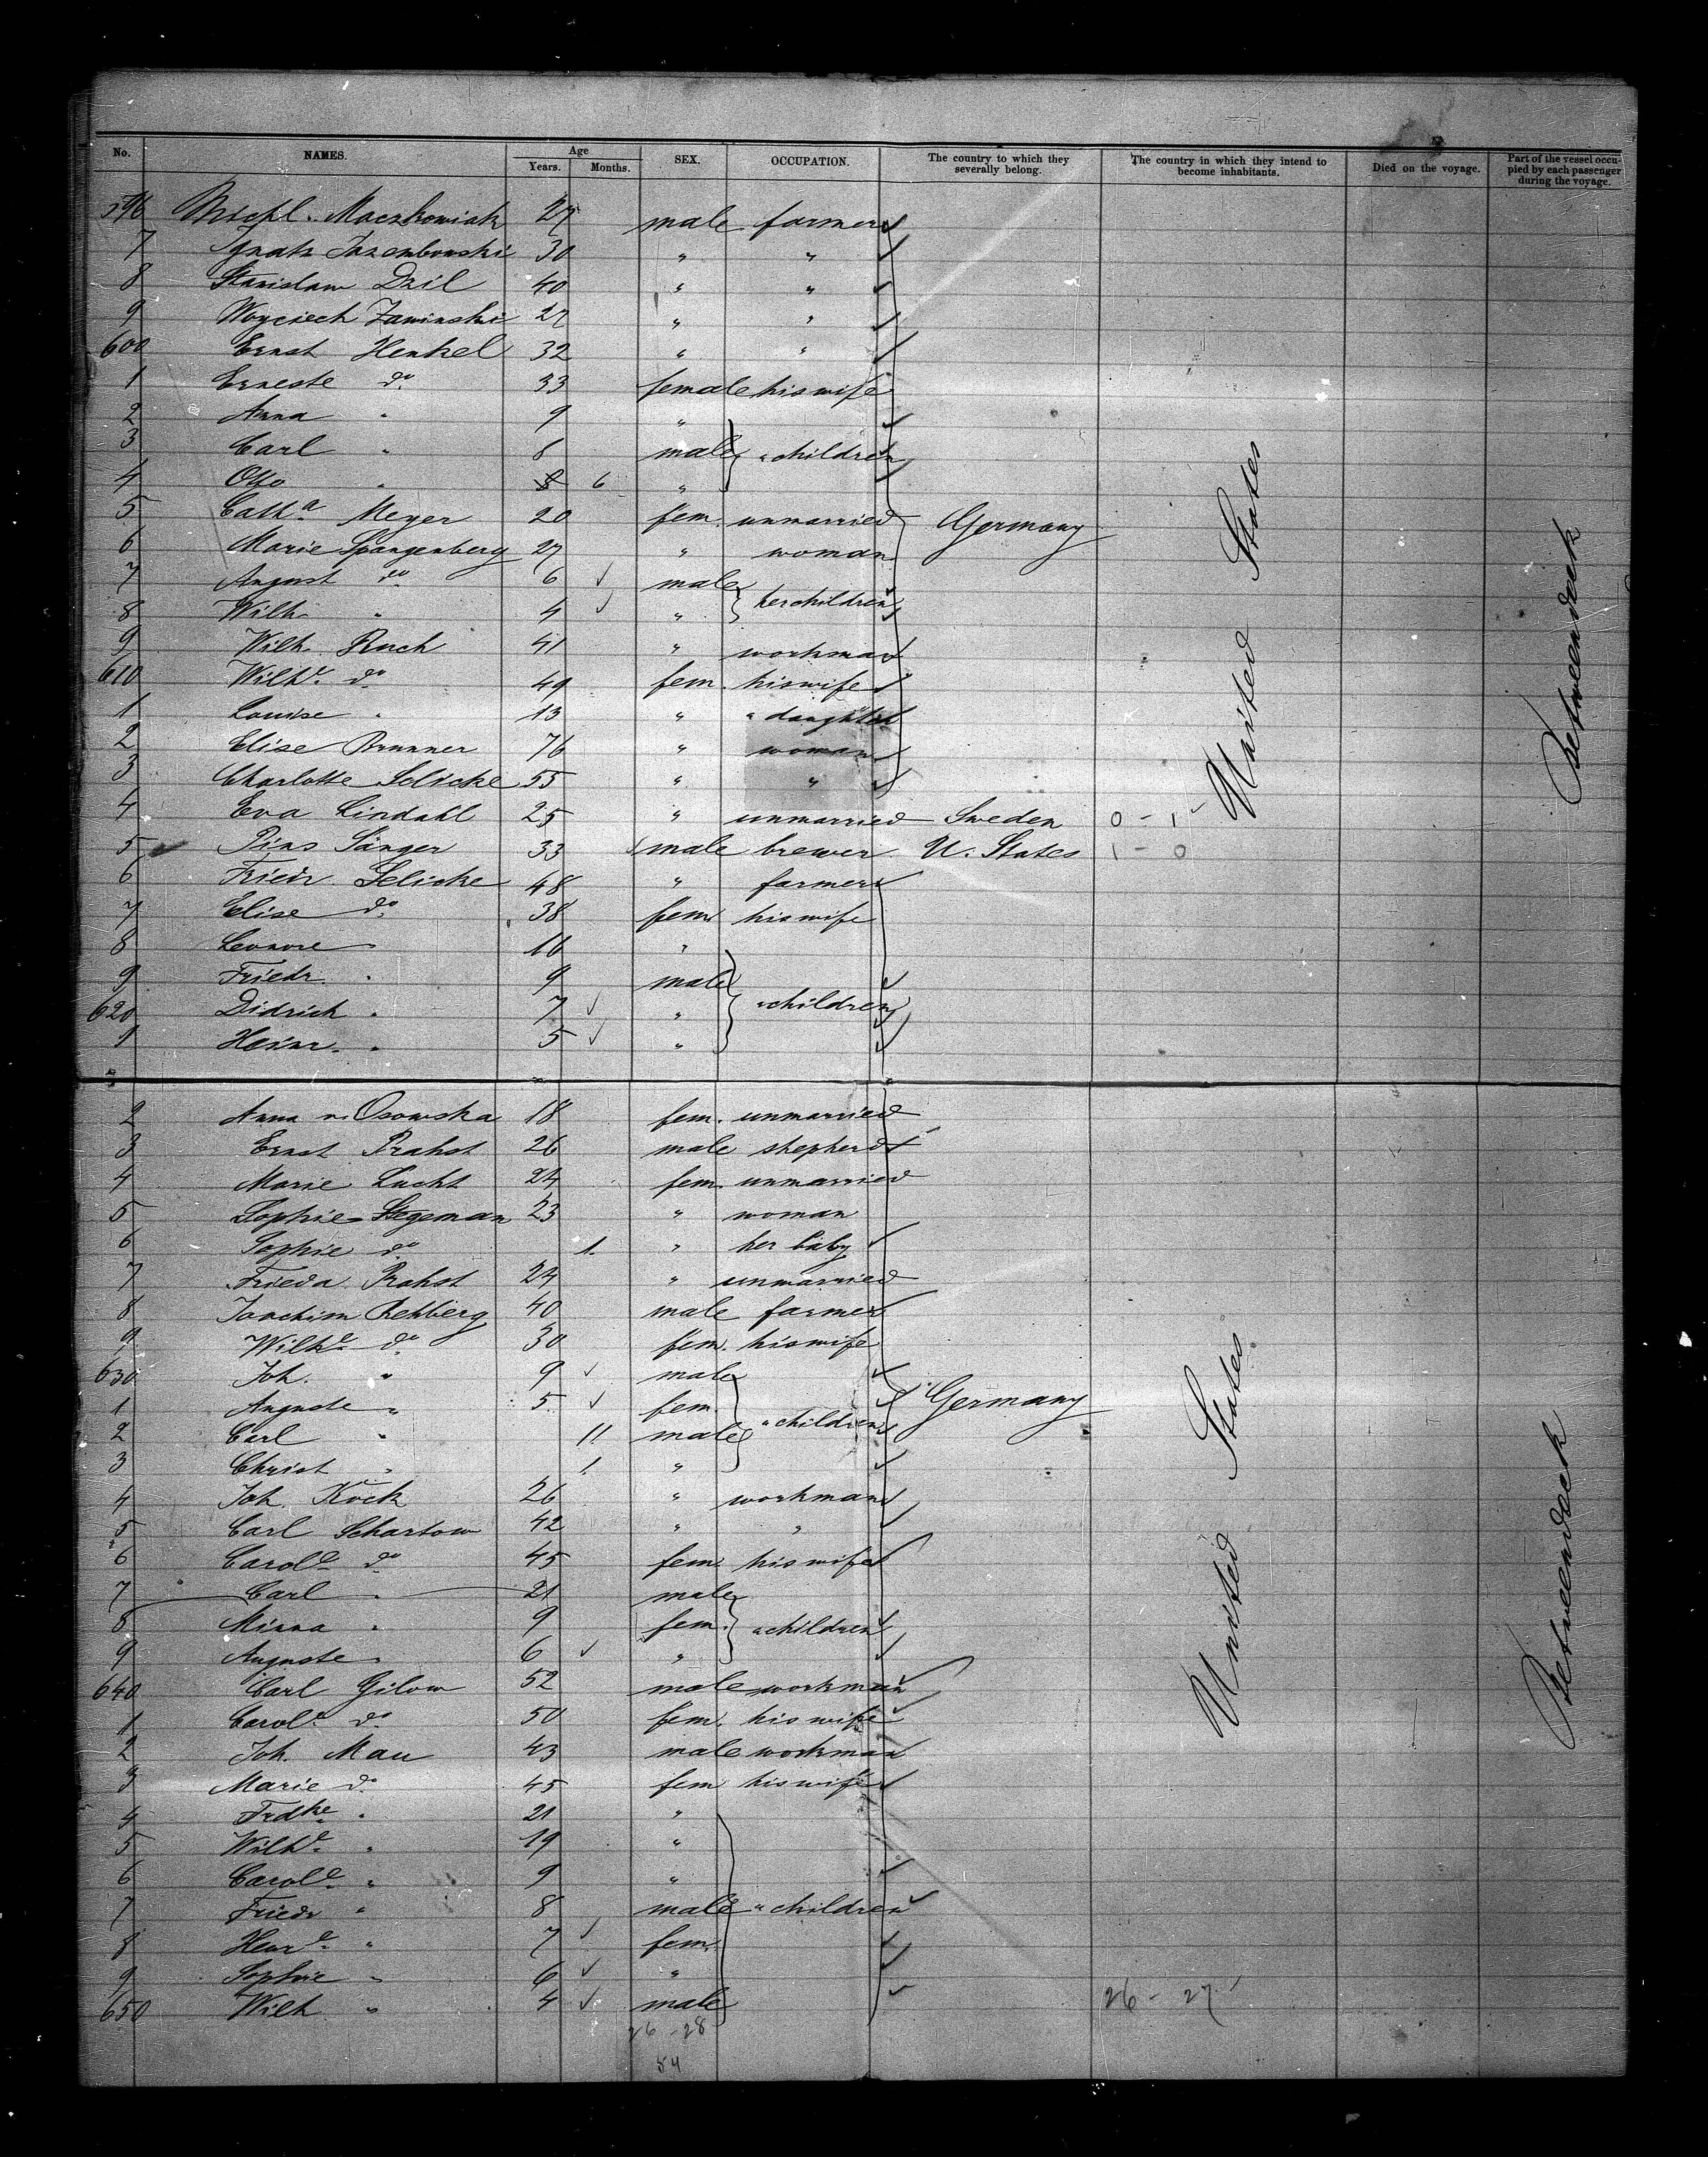 No. NAMES. Age Years. Months. SEX. OCCUPATION. The country to which they severally belong. The country in which they intend to become inhabitants. Died on the voyage. Part of the vessel occupied by each passenger during the voyage.
596 Michl. Maczkowiak 27 male farmer
7 Ignatz 30 " "
8 Stanislaw Dzil 40 " "
9 Woyciech Zawinski 27 " "
600 Ernst Henkel 32 " "
1 Erneste do 33 female his wife
2 Anna " 9 "
3 Carl " 8 male " children
4 Otto " 6 "
5 Catha Meyer 20 fem. unmarried Germany
6 Marie Spangenberg 27 " woman
7 August do 6 male
8 Wilh " 4 " her children
9 Wilh. Ruch 41 " workman
610 Wilhe. do 49 fem. his wife
1 Louise " 13 " " daughter
2 Elise Brunner 76 " woman
3 Charlotte Selicke 55 " "
4 Eva Lindahl 25 " unmarried Sweden 0 - 1
5 Pius Sänger 33 male brewer U. States 1 - 0
6 Friedr. Selicke 48 " farmer
7 Elise do 38 fem his wife
8 Leonore " 10 "
9 Friedr. " 9 male
620 Didrich " 7 " " children
1 Heinr. " 5 "
United States
Betweendeck
2 Anna v. Osowska 18 fem. unmarried
3 Ernst Prahst 26 male shepherd
4 Marie Lucht 24 fem. unmarried
5 Sophie Stegeman 23 " woman
6 Sophie do 1. " her baby
7 Frieda Prahst 24 " unmarried
8 Joachim Rehberg 40 male farmer
9 Wilhe do 30 fem. his wife
630 Joh. " 9 male
1 Auguste " 5 fem. Germany
2 Carl " 11. male " children
3 Christ " 1. "
4 Joh. Köck 26 " workman
5 Carl Schartow 42 " "
6 Carole do 45 fem. his wife
7 Carl " 21 male
8 Minna " 9 fem. " children
9 Auguste " 6 "
640 Carl Gilow 52 male workman
1 Carole. do 50 fem. his wife
2 Joh. Mau 43 male workman
3 Marie do 45 fem his wife
4 Frdke " 21 "
5 Wilhe. " 19 "
6 Carole. " 9 "
7 Friedr " 8 male " children
8 Henre. " 7 fem.
9 Sophie " 6 "
650 Wilh " 4 male 26 - 27
26 - 28
54
United States
Betweendeck